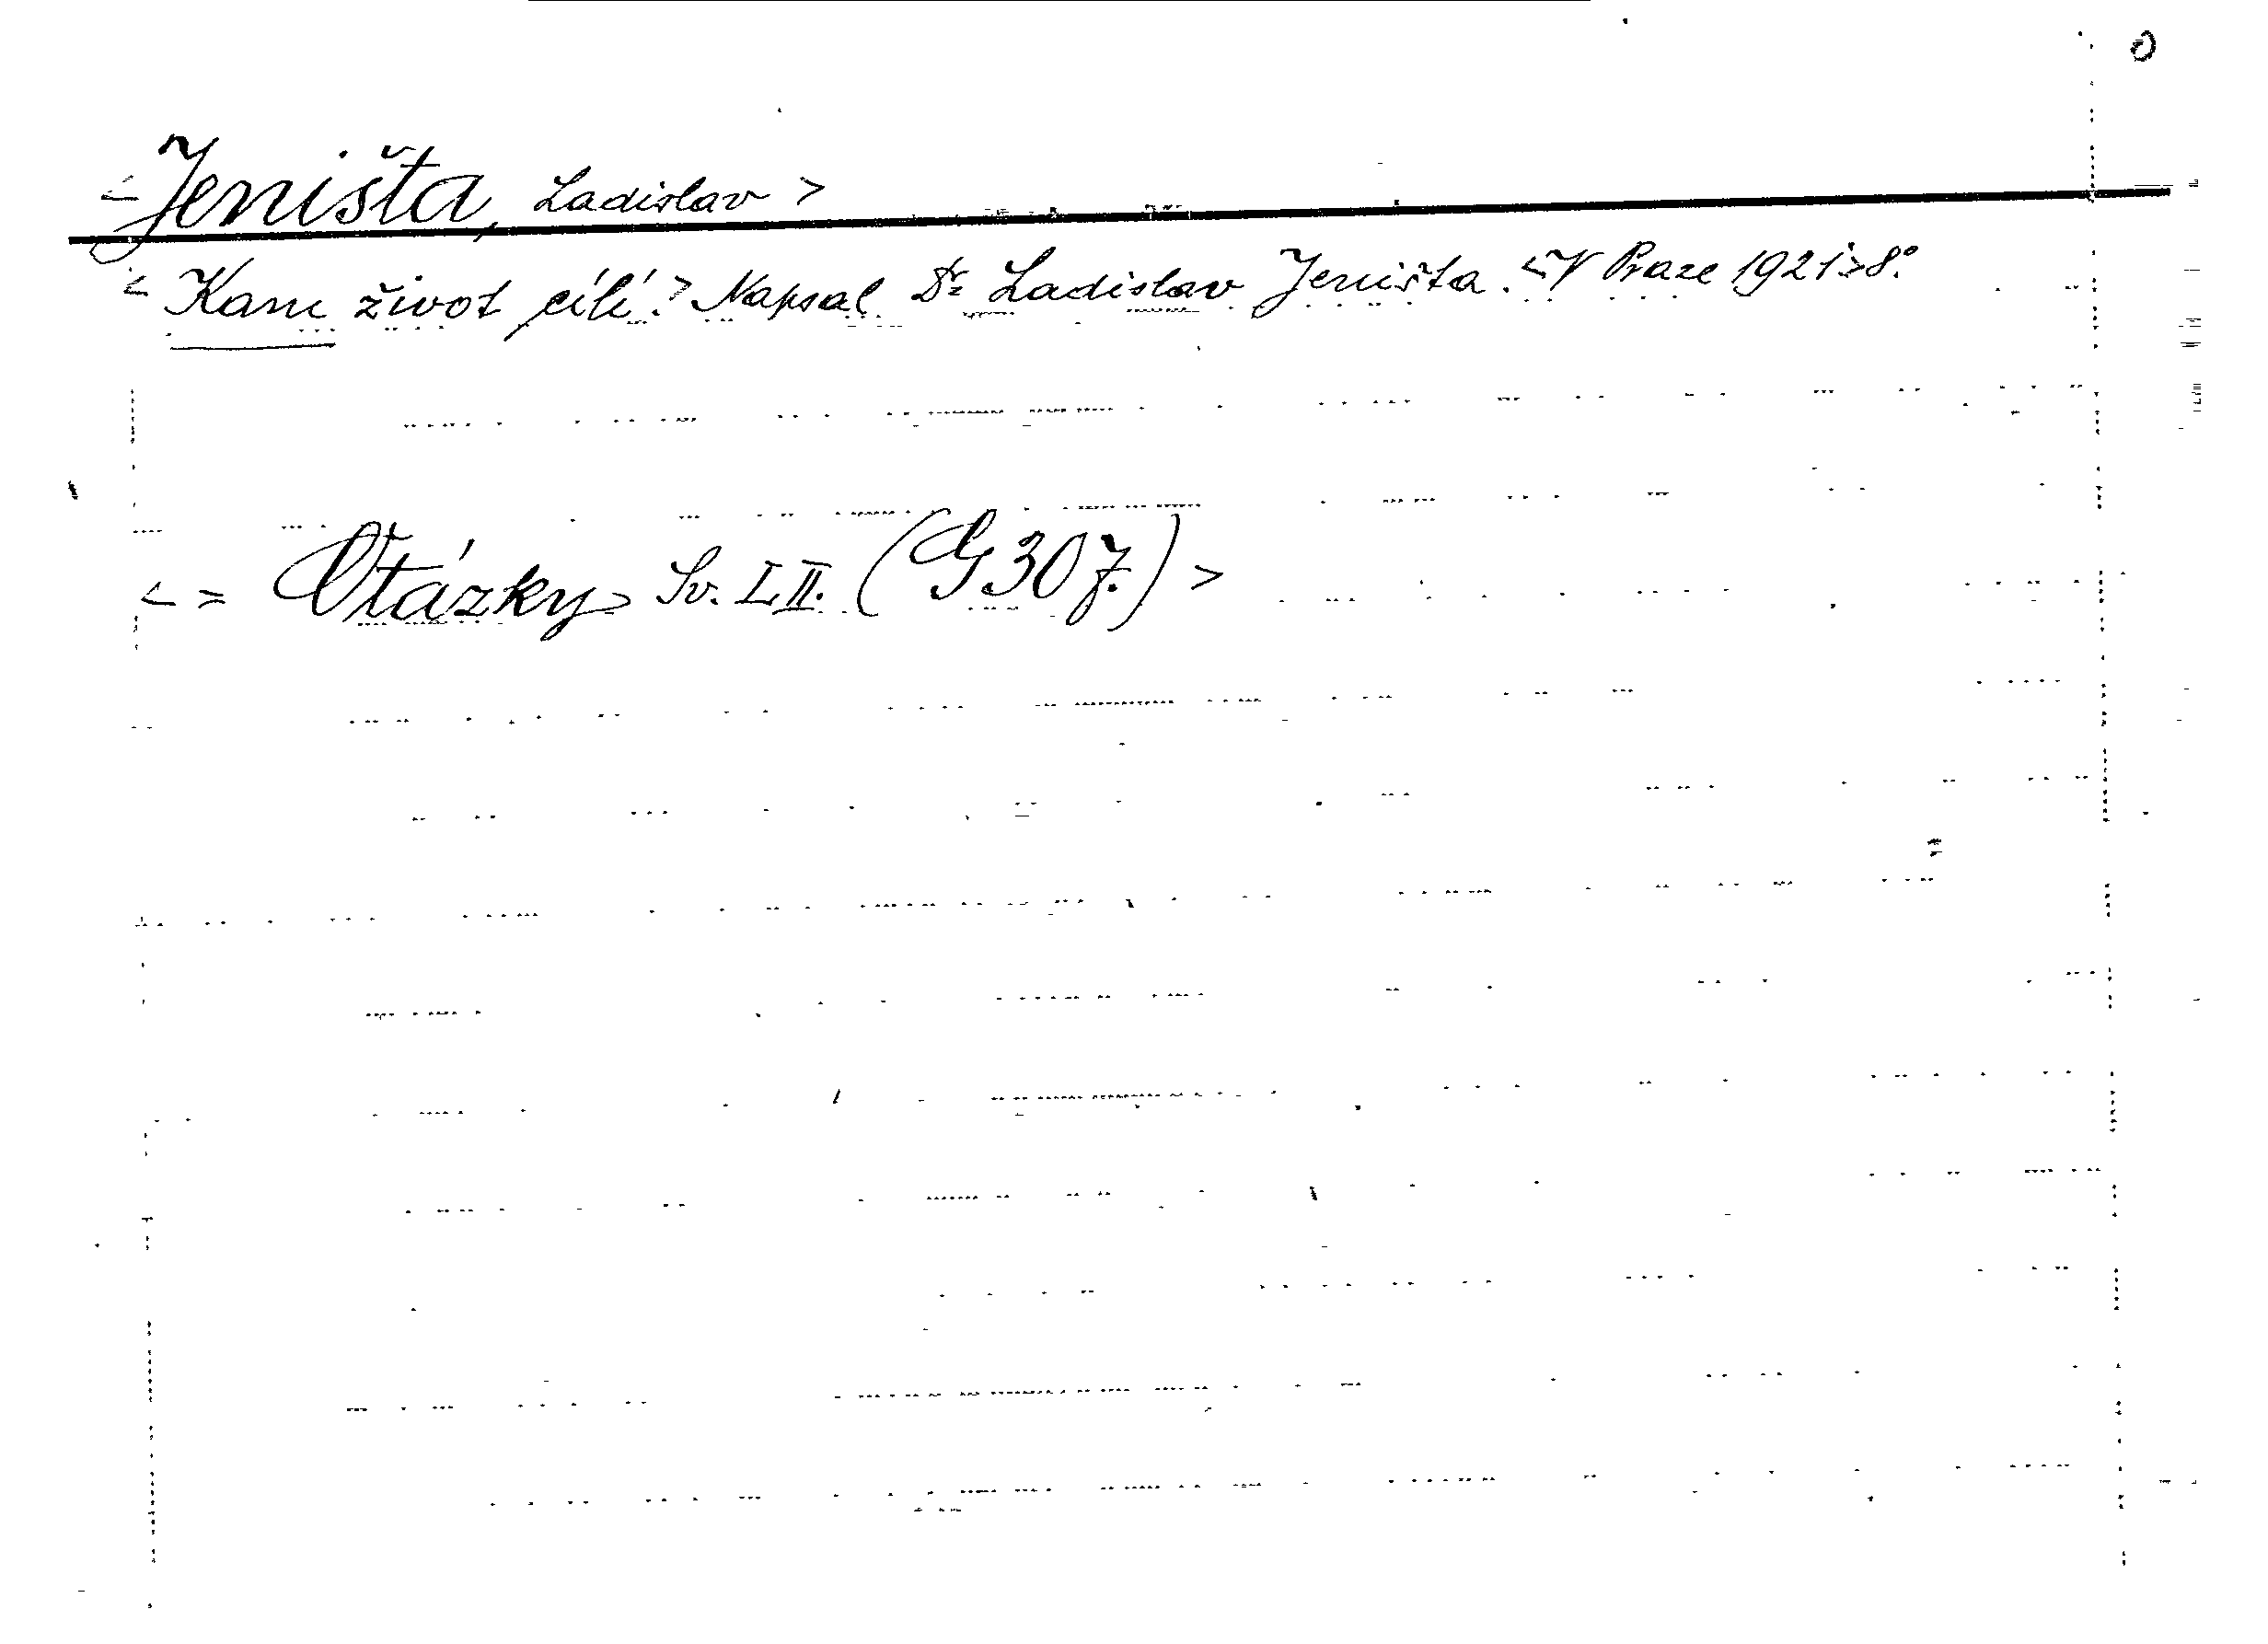 <Jeništa, Ladislav>
<Kam život cílí?> Napsal Dr Ladislav Jeništa. <V Praze 1921> 8°.
<= Otázky> Sv. I, II. (G 30 7.)>